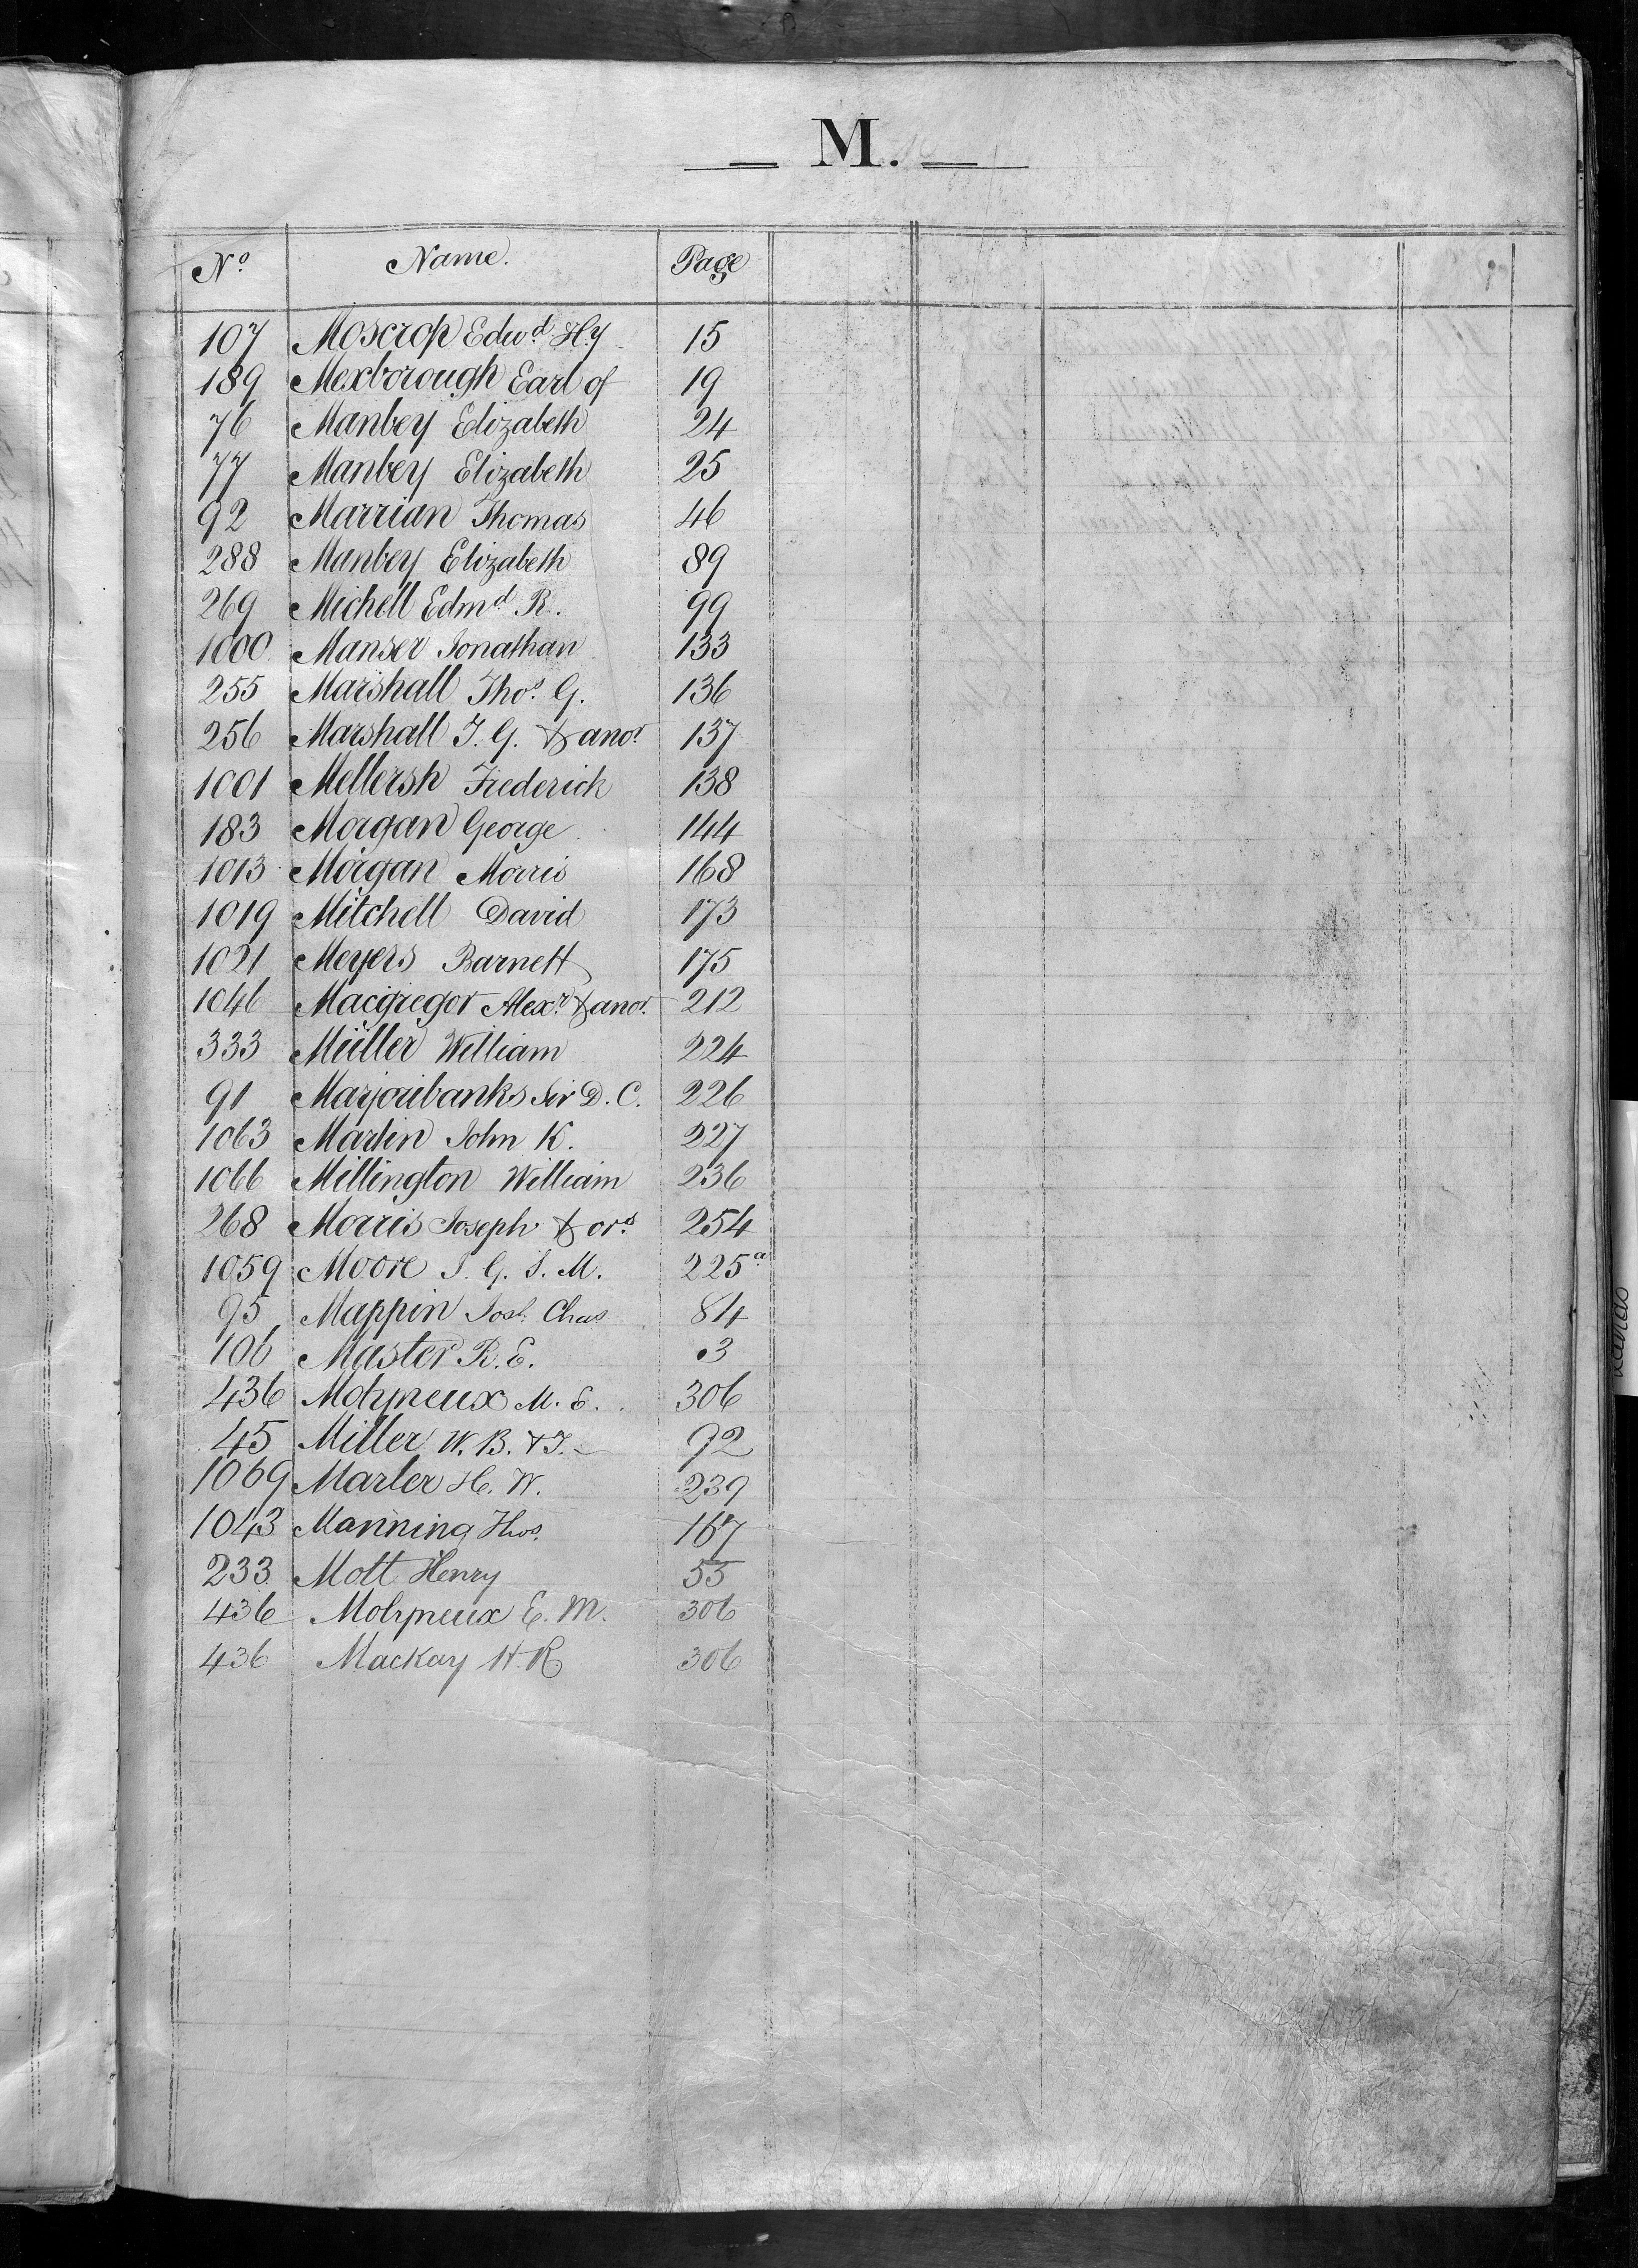 M.
No. Name. Page
107 Moscrop Edwd. Hy 15
189 Mexborough Earl of 19
76 Manbey Elizabeth 24
77 Manbey Elizabeth 25
92 Marrian Thomas 46
288 Manbey Elizabeth 89
269 Michell Edmd. R. 99
1000 Manser Jonathan 133
255 Marshall Thos. G. 136
256 Marshall T. G. & anor. 137
1001 Mellersh Frederick 138
183 Morgan George 144
1013 Morgan Morris 168
1019 Mitchell David 173
1021 Meyers Barnett 175
1046 Macgregor Alexr. & anor. 212
333 Müller William 224
91 Marjoribanks Sir D. C. 226
1063 Martin John K. 227
1066 Millington William 236
268 Morris Joseph & ors. 254
1059 Moore J. G. S. M. 225a
95 Mappin Josh. Chas 84
106 Master R. E. 3
436 Molyneux M. E. 306
45 Miller W. B. & T. 92
1069 Marler H. W. 239
1043 Manning Thos. 167
233 Mott Henry 55
436 Molyneux E. M. 306
436 Mackay H. R. 306